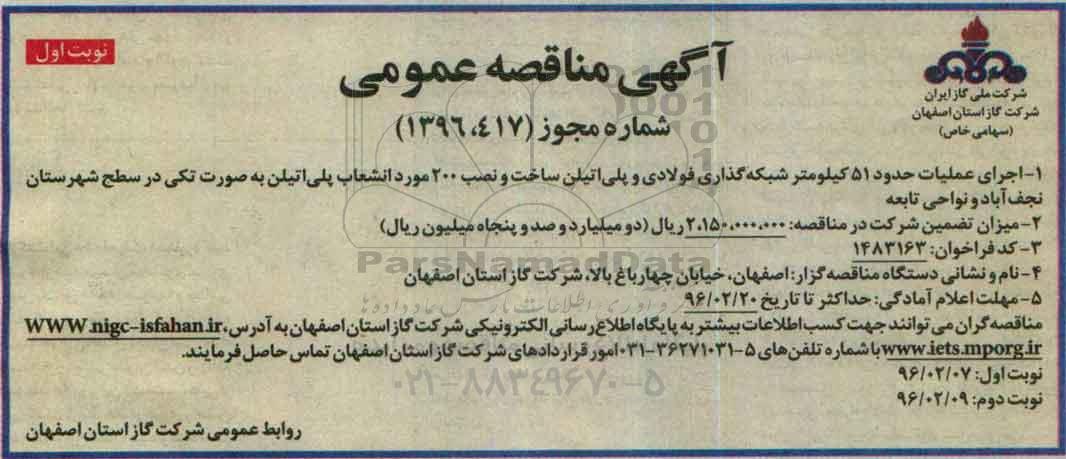 نوبت اول
آگهی مناقصه عمومی
شماره مجوز (۱۳۹۶،۴۱۷)
شرکت ملی گاز ایران
شرکت گاز استان اصفهان
(سهامی خاص)
۱- اجرای عملیات حدود ۵۱ کیلومتر شبکه گذاری فولادی و پلی اتیلن ساخت و نصب ۲۰۰ مورد انشعاب پلی اتیلن به صورت تکی در سطح شهرستان
نجف آباد و نواحی تابعه
۲- میزان تضمین شرکت در مناقصه: ۲،۱۵۰،۰۰۰،۰۰۰ ریال (دو میلیارد و صد و پنجاه میلیون ریال)
۳- کد فراخوان: ۱۴۸۳۱۶۳
۴- نام و نشانی دستگاه مناقصه گزار: اصفهان، خیابان چهارباغ بالا، شرکت گاز استان اصفهان
۵- مهلت اعلام آمادگی: حداکثر تا تاریخ ۹۶/۰۲/۲۰
مناقصه گران می توانند جهت کسب اطلاعات بیشتر به پایگاه اطلاع رسانی الکترونیکی شرکت گاز استان اصفهان به آدرس، WWW.nigc-isfahan.ir
www.iets.mporg.ir با شماره تلفن های ۵-۳۶۲۷۱۰۳۱-۰۳۱ امور قراردادهای شرکت گاز استان اصفهان تماس حاصل فرمایند.
نوبت اول: ۹۶/۰۲/۰۷
نوبت دوم: ۹۶/۰۲/۰۹
روابط عمومی شرکت گاز استان اصفهان
ParsNamadData
۰۲۱-۸۸۳۴۹۶۷۰-۵